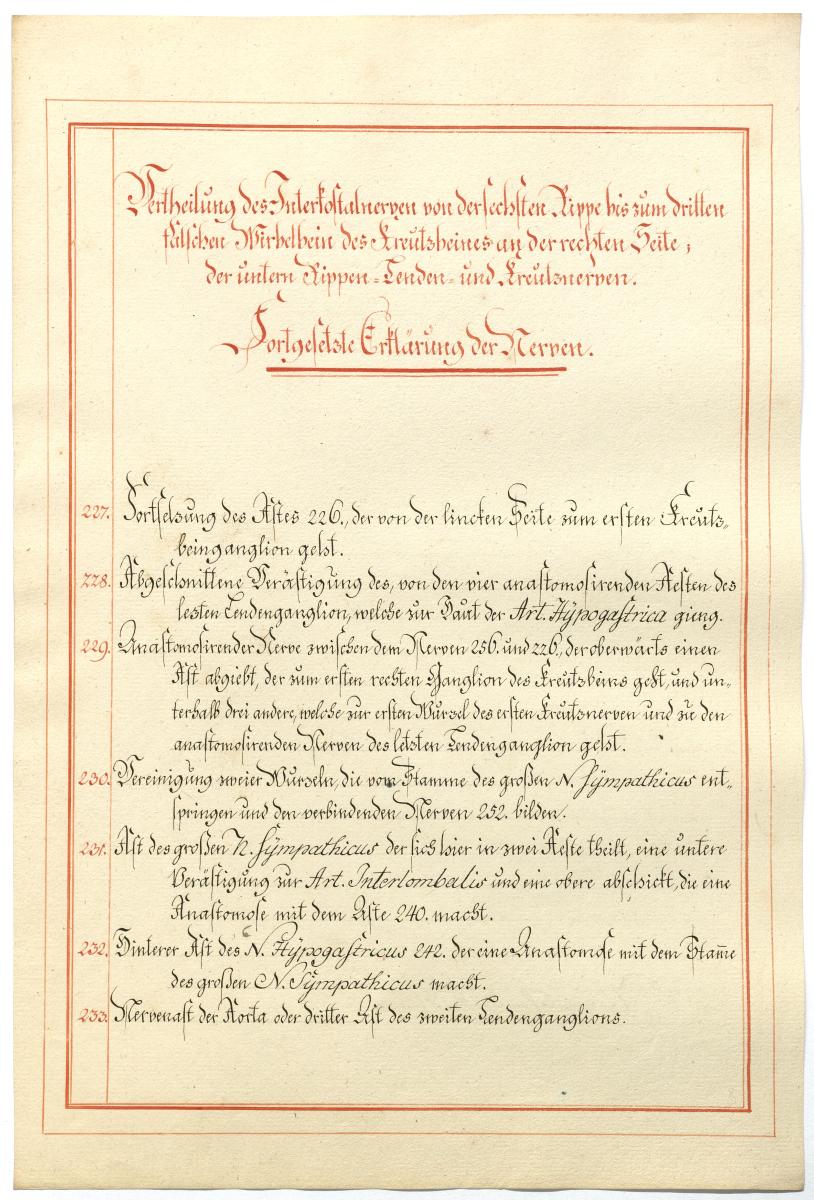 Vertheilung des Interkostalnerven von der sechsten Rippe bis zum dritten
falschen Wirbelbein des Kreutzbeines an der rechten Seite;
der untern Rippen- Lenden- und Kreutznerven.
Fortgesetzte Erklärung der Nerven.
227. Fortsetzung des Astes 226., der von der lincken Seite zum ersten Kreutz-
beinganglion geht.
228. Abgeschnittene Verästigung des, von den vier anastomosirenden Aesten des
lezten Lendenganglion, welche zur Haut der Art. Hÿpogastrica gieng.
229. Anastomosirender Nerve zwischen dem Nerven 256. und 226., der oberwärts einen
Ast abgiebt, der zum ersten rechten Ganglion des Kreutzbeins geht, und un-
terhalb drei andere, welche zur ersten Wurzel des ersten Kreutznerven und zu den
anastomosirenden Nerven des letzten Lendenganglion geht.
230. Vereinigung zweier Wurzeln, die vom Stamme des großen N. Sÿmpathicus ent-
springen und den verbindenden Nerven 252. bilden.
231. Ast des großen N. Sÿmpathicus der sich hier in zwei Aeste theilt, eine untere
Verästigung zur Art. Interlombalis und eine obere abschickt, die eine
Anastomose mit dem Aste 240. macht.
232. Hinterer Ast des N. Hÿpogastricus 242. der eine Anastomose mit dem Stam̄e
des großen N. Sÿmpathicus macht.
233. Nervenast der Aorta oder dritter Ast des zweiten Lendenganglions.